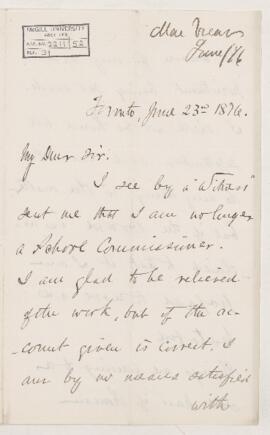 McGILL UNIVERSITY
ARCHIVES
ACC. NO. 2211 52
REF. 31
Mac Vicar
June/76
Toronto, June 23rd 1876.
My Dear Sir:
I see by a "Witness"
sent me that I am no longer
a School Commissioner.
I am glad to be relieved
of the work, but if the ac-
-count given is correct I
am by no means satisfied
with